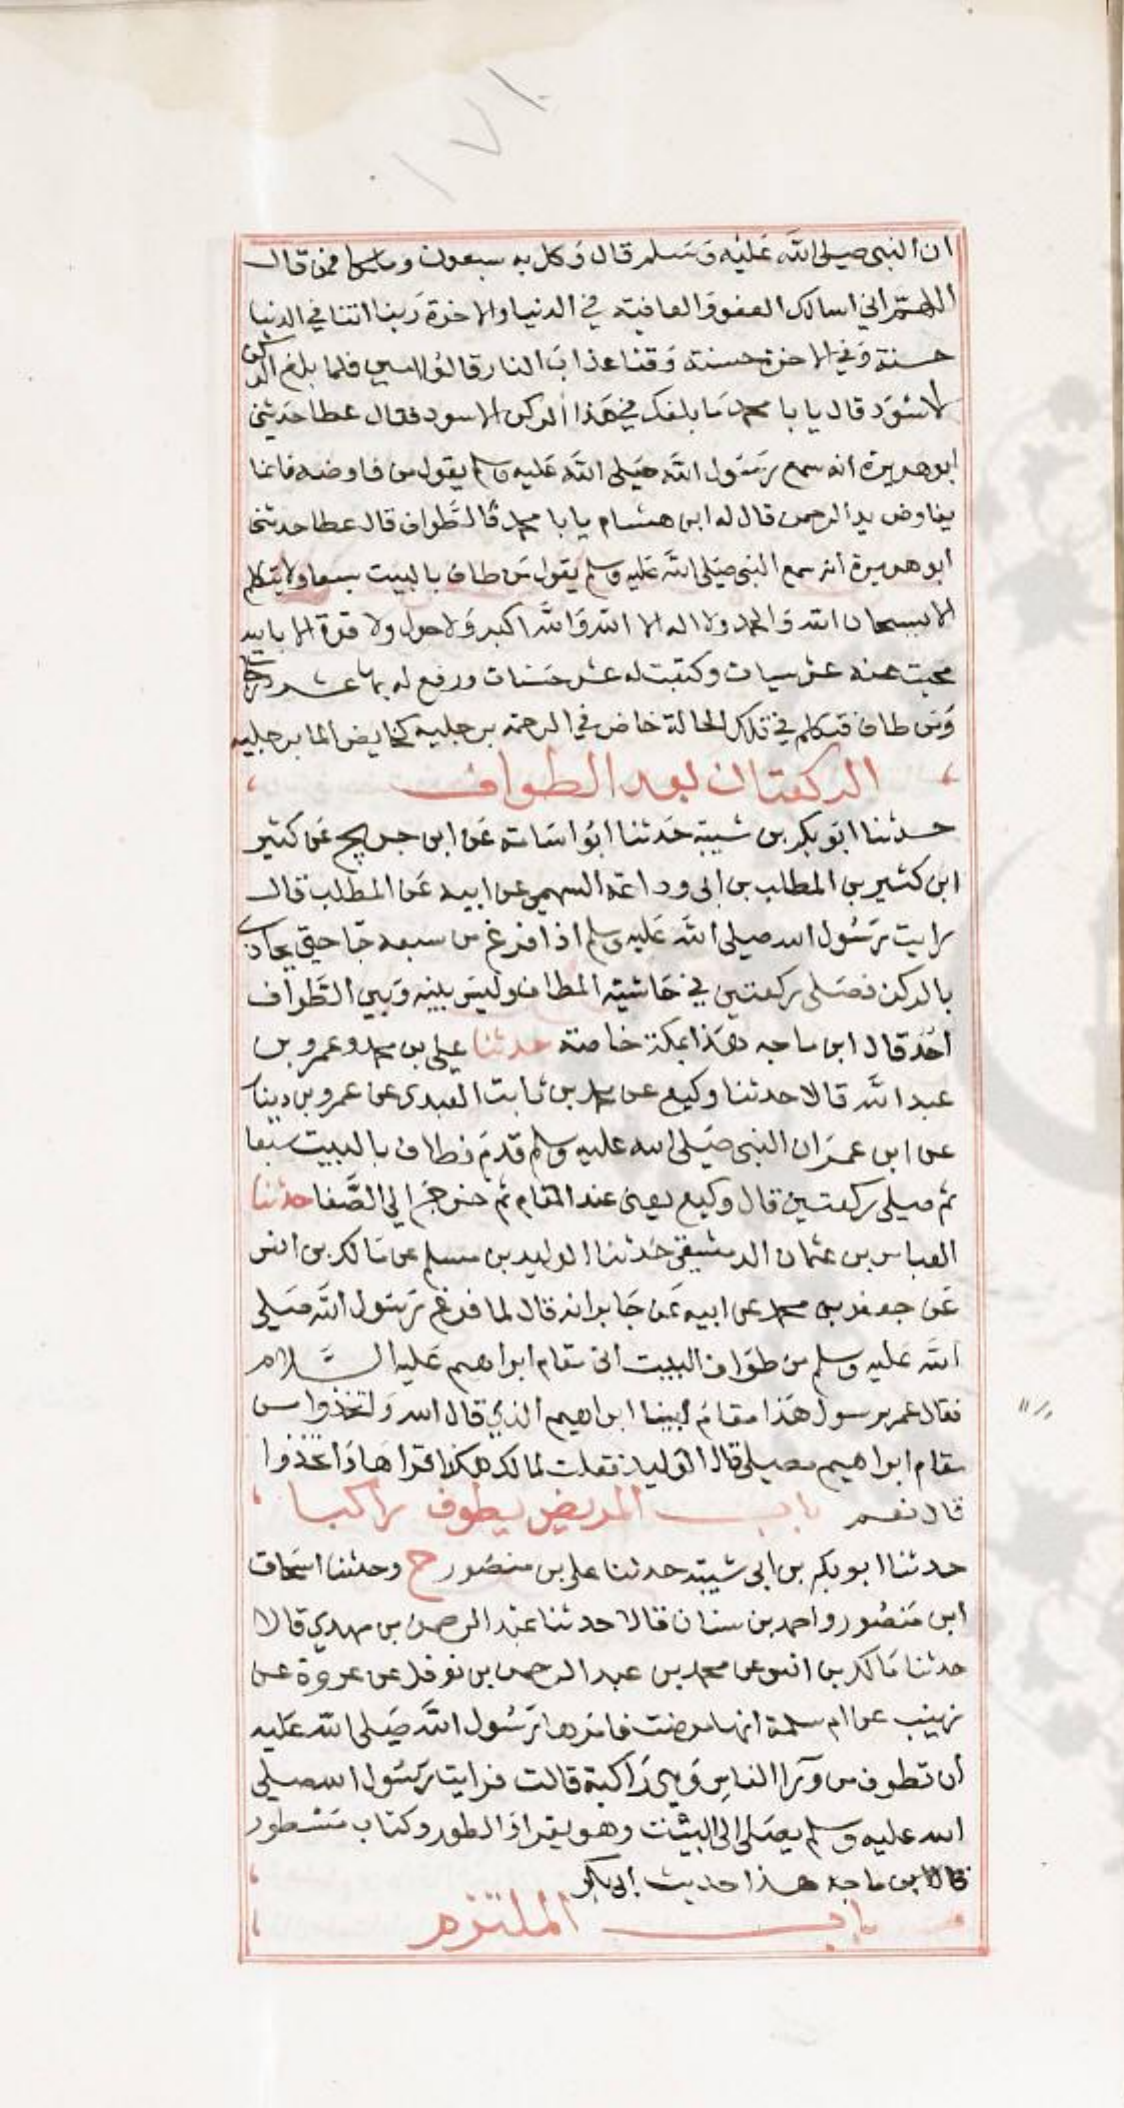 ١٧١
ان النبي صلى الله عليه وسلم قال وكل به سبعون فمن قال
اللهم اني اسالك العفو والعافية في الدنيا والاخرة ربنا اتنا في الدنيا
حسنة وفي الاخرة حسنة وقنا عذاب النار قالوا امين فلما بلغ الركن
لاسود قال يا با محمد ما بلغك في هذا الركن الاسود فقال عطا حدثني
ابو هريرة انه سمع رسول الله صلى الله عليه وسلم يقول من فاوضه فانما
يفاوض يد الرحمن قال له ابن هشام يا با محمد فالطواف قال عطا حدثني
أبو هريرة انه سمع النبي صلى الله عليه وسلم يقول من طاف بالبيت سبعا ولا يتكلم
الا بسبحان الله والحمد ولا اله الا الله والله اكبر ولا حول ولا قوة الا بالله
محيت عنه عشر سيات وكتبت له عشر حسنات ورفع له بها عشر درجات
ومن طاف فتكلم في تلك الحالة خاض في الرحمة برجليه كخايض الما برجليه
الركعتان بعد الطواف
حدثنا ابو بكر بن شيبة حدثنا ابو اسامة عن ابن جريج عن كثير
ابن كثير بن المطلب بن ابي وداعة السهمي عن ابيه عن المطلب قال
رايت رسول الله صلى الله عليه وسلم اذا فرغ من سبعه جا حتى يحاذي
بالركن فصلى ركعتين في حاشية المطاف وليس بينه وبين الطواف
احد قال ابن ماجه هذا بمكة خاصة حدثنا علي بن محمد وعمرو بن
عبد الله قالا حدثنا وكيع عن محمد بن ثابت العبدي عن عمرو بن دينار
عن ابن عمر ان النبي صلى الله عليه وسلم قدم فطاف بالبيت سبعا
ثم صلى ركعتين قال وكيع يعني عند المقام ثم خرج الي الصفا حدثنا
العباس بن عثمان الدمشقي حدثنا الوليد بن مسلم عن مالك بن انس
عن جعفر بن محمد عن ابيه عن جابر انه قال لما فرغ رسول الله صلى
الله عليه وسلم من طواف البيت اتى مقام ابراهيم عليه السلام
فقال عمر يرسول هذا مقام ابينا ابراهيم الذي قال الله واتخذوا من
مقام ابراهيم مصلى قال الوليد فقلت لمالك هكذا قراها واتخذوا
قال نعم باب المريض يطوف راكبا
حدثنا ابو بكر بن ابي شيبة حدثنا علي بن منصور ح وحدثنا اسحاق
ابن منصور واحمد بن سنان قالا حدثنا عبد الرحمن بن مهدي قالا
حدثنا مالك بن انس عن محمد بن عبد الرحمن بن نوفل عن عروة عن
زينب عن ام سلمة انها مرضت فامرها رسول الله صلى الله عليه
أن تطوف من ورا الناس وهي راكبة قالت فرايت رسول الله صلى
الله عليه وسلم يصلى الى البيت وهو يقرا والطور وكتاب مسطور
قال ابن ماجه هذا حديث ابي بكر
باب الملتزم